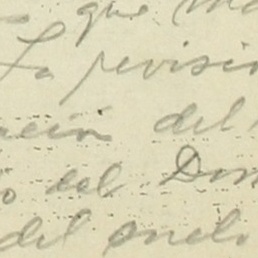 que
La revisió
ación del
o del Dom
del suelo